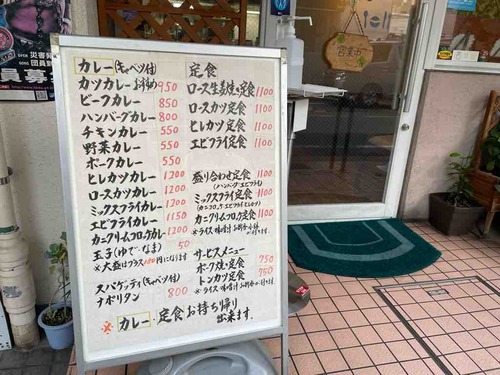 カレー(キャベツ付)
カツカレー お弁当 950
ビーフカレー 850
ハンバーグカレー 800
チキンカレー 550
野菜カレー 550
ポークカレー 550
ヒレカツカレー 1200
ロースカツカレー 1200
ミックスフライカレー 1200
エビフライカレー 1150
カニクリームコロッケカレー 1200
玉子(ゆで・なま) 50
※大盛はプラス150円になります
スパゲッティ(キャベツ付)
ナポリタン 800
定食
ロース生姜焼き定食 1100
ロースカツ定食 1100
ヒレカツ定食 1100
エビフライ定食 1100
盛り合わせ定食 1100
(ハンバーグ・エビフライ)
ミックスフライ定食 1100
(カニコロッケ・エビフライ・ヒレカツ)
カニクリームコロッケ定食 1100
※ライス・味噌汁・お新香が付きます
サービスメニュー
ポーク焼き定食 750
トンカツ定食 750
※ライス・味噌汁・お新香が付きます
※カレー・定食お持ち帰り
出来ます。
営業中
災害
団員
員募